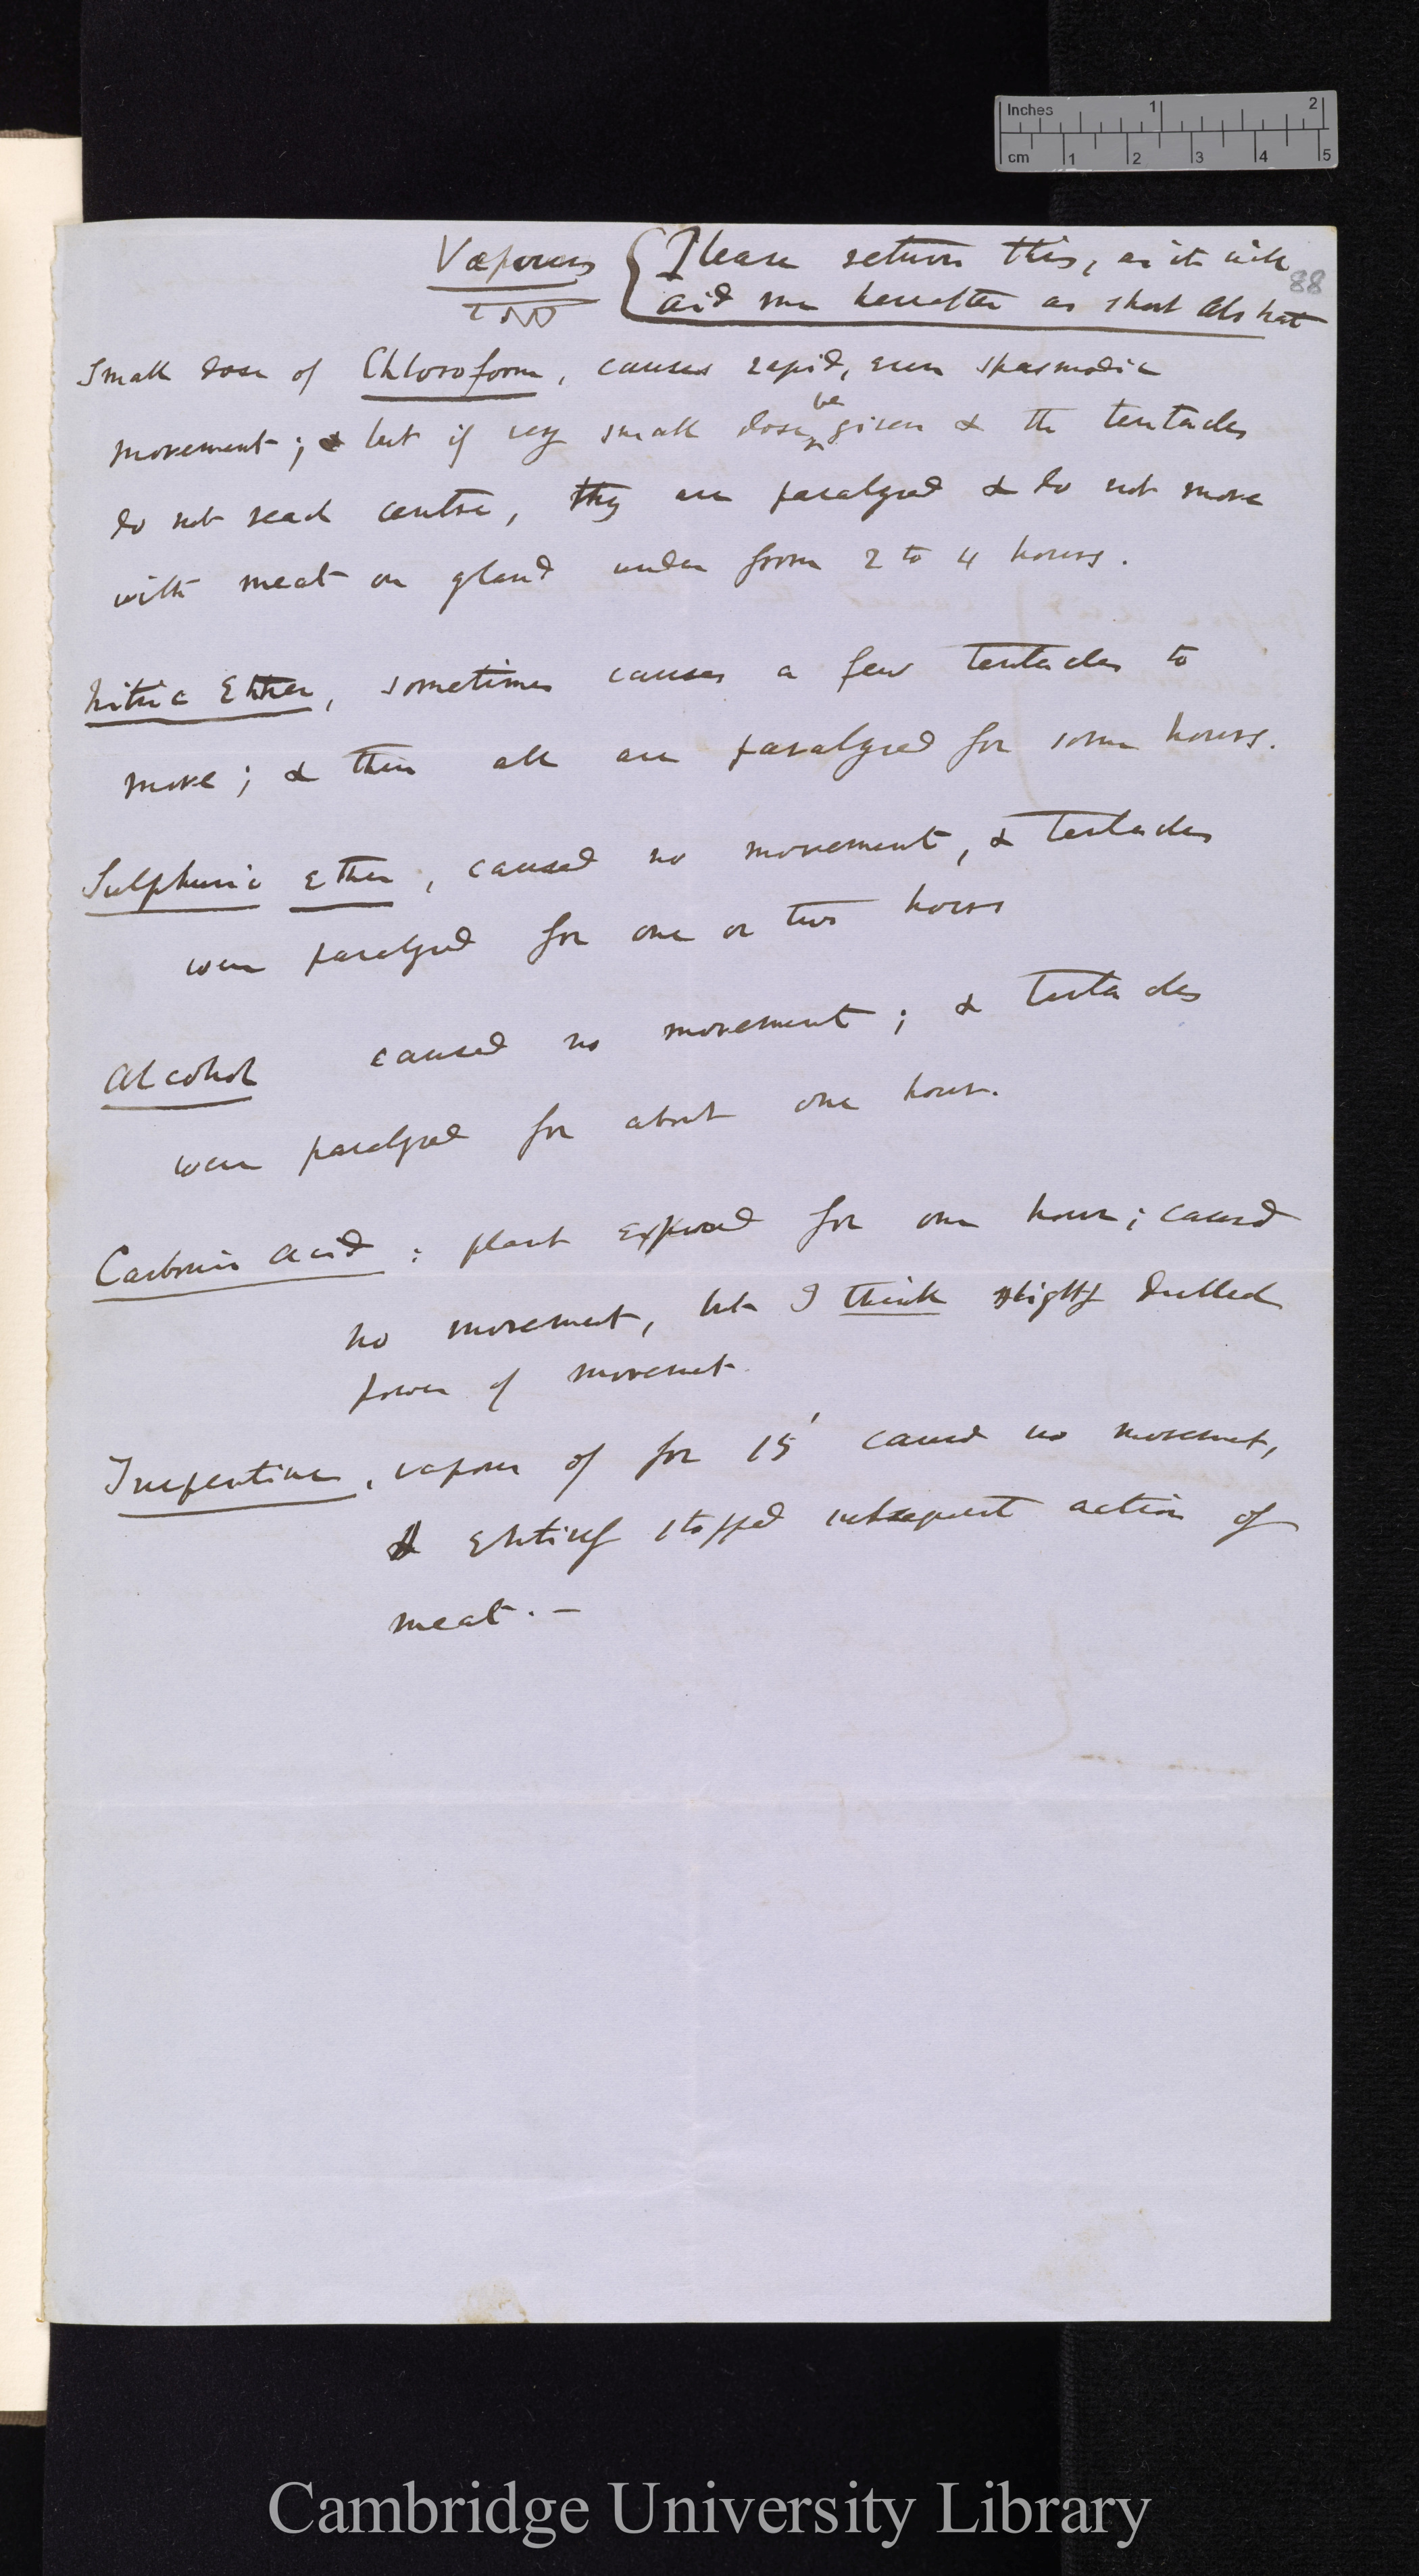 Inches 1 2
cm 1 2 3 4 5
Vapours { Please return this, as it will
88
aid me hereafter as short Abstract
Small dose of Chloroform, causes rapid, even spasmodic
movement; & but if very small dose be given & the tentacles
do not reach centre, they are paralysed & do not move
with meat on gland under from 2 to 4 hours.
Nitric Ether, sometimes causes a few tentacles to
move; & then all are paralysed for some hours.
Sulphuric Ether, caused no movement, & tentacles
were paralysed for one or two hours
Alcohol caused no movement; & tentacles
were paralysed for about one hour.
Carbonic acid: plant exposed for one hour; caused
no movement, but I think slightly dulled
power of movement.
Turpentine, vapour of for 15' caused no movement,
& entirely stopped subsequent action of
meat. —
Cambridge University Library